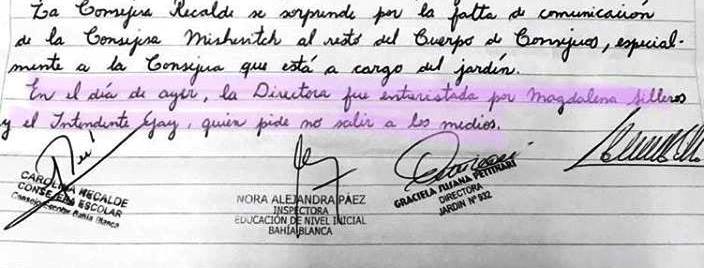 La Consejera Recalde se sorprende por la falta de comunicación
de la Consejera Mishevitch al resto del Cuerpo de Consejeros, especial-
mente a la Consejera que está a cargo del jardín.
En el día de ayer, la Directora fue entrevistada por Magdalena Silleros
y el Intendente Gay, quien pide no salir a los medios.
CAROLINA RECALDE
CONSEJERA ESCOLAR
Consejo Escolar Bahía Blanca
NORA ALEJANDRA PÁEZ
INSPECTORA
EDUCACIÓN DE NIVEL INICIAL
BAHÍA BLANCA
GRACIELA SUSANA PETTINARI
DIRECTORA
JARDIN Nº 932